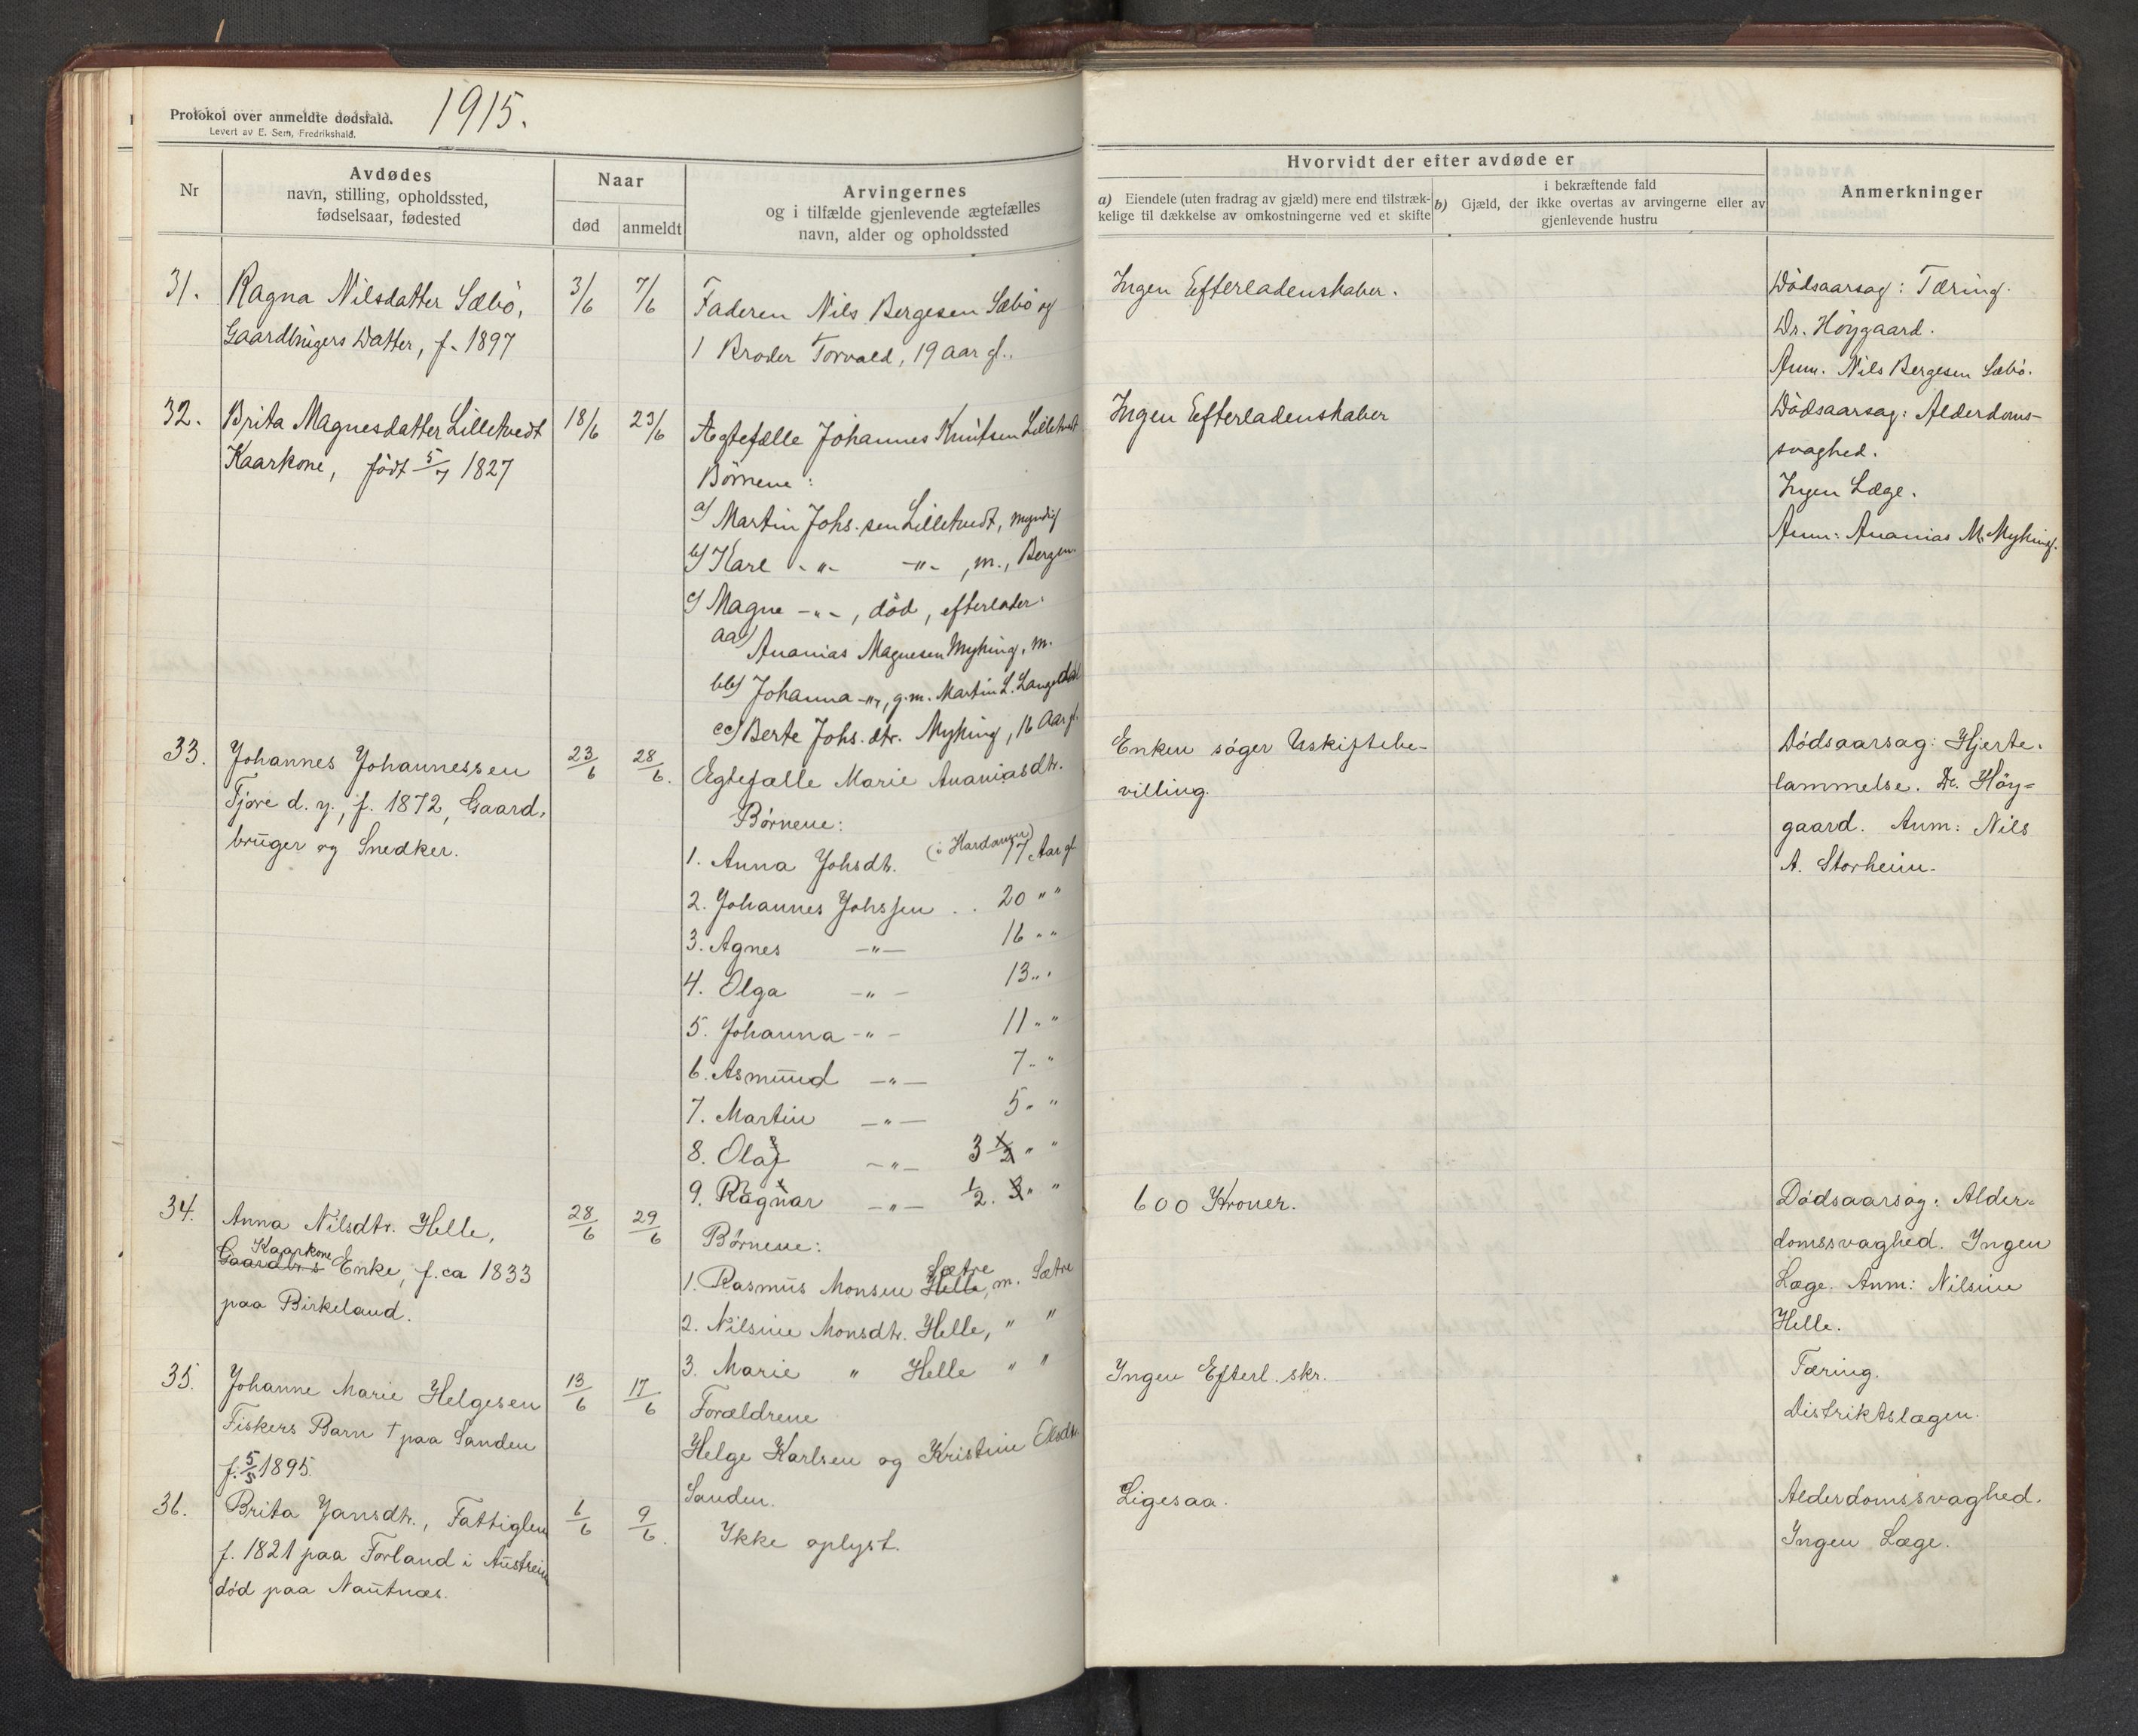 Protokol over anmeldte dødsfald. 1915.
Levert av E. Sem, Fredrikshald.
Nr
Avdødes
navn, stilling, opholdssted,
fødselsaar, fødested
Naar
død
anmeldt
Arvingernes
og i tilfælde gjenlevende ægtefælles
navn, alder og opholdssted
Hvorvidt der efter avdøde er
a) Eiendele (uten fradrag av gjæld) mere end tilstræk-
kelige til dækkelse av omkostningerne ved et skifte
b) i bekræftende fald
Gjæld, der ikke overtas av arvingerne eller av
gjenlevende hustru
Anmerkninger
31.
Ragna Nilsdatter Sæbö,
Gaardbrugers Datter, f. 1897
3/6
7/6
Faderen Nils Bergesen Sæbö og
1 Broder Torvald, 19 aar gl.
Ingen Efterladenskaber.
Dödsaarsag: Tæring.
Dr. Höygaard.
Anm. Nils Bergesen Sæbö.
32.
Brita Magnesdatter Lilletvedt
Kaarkone, født 5/7 1827
18/6
23/6
Ægtefælle Johannes Knutsen Lilletvedt
Börnene:
a) Martin Johs.sen Lilletvedt, myndig
b) Karl -"- -"-, m., Bergen
c) Magne -"-, död, efterlater:
aa) Ananias Magnesen Myking, m.
bb) Johanna -"-, g.m. Martin L. Langedal
cc) Berte Johs.dtr. Myking, 16 Aar gl.
Ingen Efterladenskaber
Dödsaarsag: Alderdoms-
svaghed.
Ingen Læge.
Anm: Ananias M. Myking.
33.
Johannes Johannessen
Tjore d. y., f. 1872, Gaard-
bruger og Snedker.
23/6
28/6.
Ægtefælle Marie Ananiasdtr.
Børnene:
1. Anna Johsdtr. (i Hardanger) 17 Aar gl
2. Johannes Johssen . . 20 " "
3. Agnes -"- 16 " "
4. Olga -"- 13 " "
5. Johanna -"- 11 " "
6. Asmund -"- 7 " "
7. Martin -"- 5 " "
8. Olaf -"- 3 1/2 " "
9. Ragnar -"- 1/2. 3 " "
Enken söger Uskiftebe-
villing.
Dødsaarsag: Hjerte-
lammelse. Dr. Höy-
gaard. Anm: Nils
A. Storheim.
34.
Anna Nilsdtr. Helle,
Kaarkone
Gaardbr.s Enke, f. ca 1833
paa Birkeland.
28/6
29/6
Børnene:
1. Rasmus Monsen Helle Sætre, m. Sætre
2. Nilsine Monsdtr. Helle, " "
3. Marie " Helle " "
600 Kroner.
Dødsaarsag: Alder-
domssvaghed. Ingen
Læge. Anm: Nilsine
Helle.
35.
Johanne Marie Helgesen
Fiskers Barn † paa Sanden
f. 5/5 1895.
13/6
17/6
Forældrene
Helge Karlsen og Kristine Olsdtr.
Sanden.
Ingen Efterl.skr.
Tæring.
Distriktslægen.
36.
Brita Jansdtr., Fattiglem
f. 1821 paa Forland i Austrheim
død paa Nautnæs.
6/6
9/6.
Ikke oplyst.
Ligesaa.
Alderdomssvaghed.
Ingen Læge.